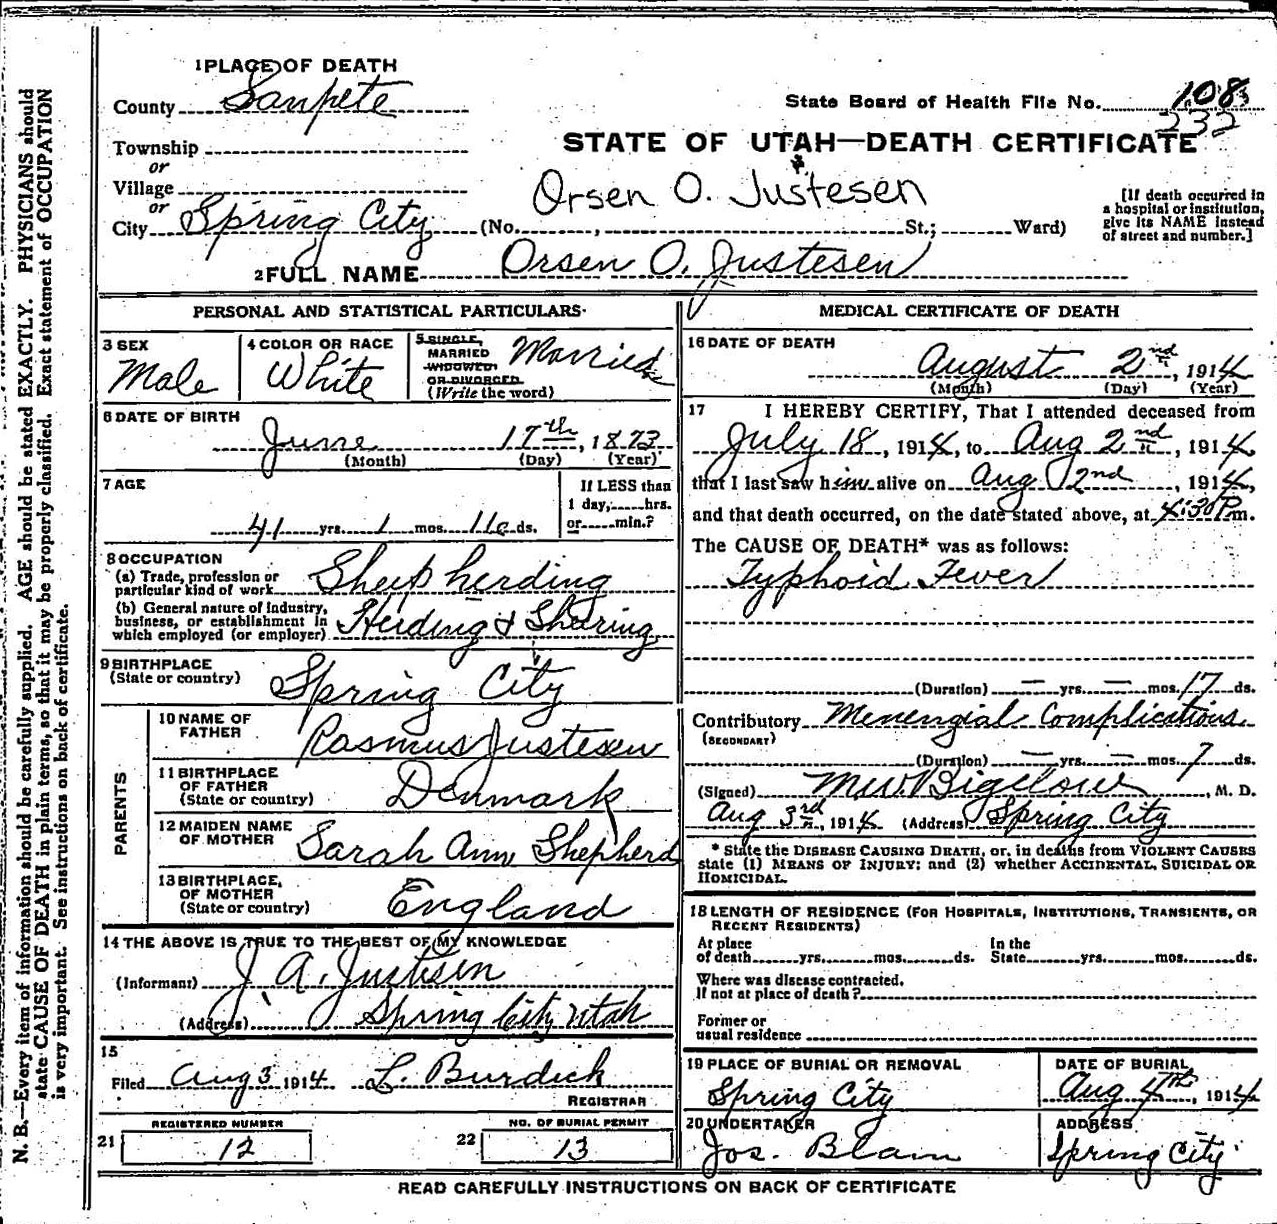 1 PLACE OF DEATH
County Sanpete
State Board of Health File No. 108
232
Township
or
Village
or
City Spring City (No. , St.; Ward)
STATE OF UTAH—DEATH CERTIFICATE
Orsen O. Justesen
[If death occurred in
a hospital or institution,
give its NAME instead
of street and number.]
2 FULL NAME Orsen O. Justesen
PERSONAL AND STATISTICAL PARTICULARS
3 SEX
Male
4 COLOR OR RACE
White
5 SINGLE,
MARRIED
WIDOWED
OR DIVORCED
(Write the word)
Married
6 DATE OF BIRTH
June 17th, 1873
(Month) (Day) (Year)
7 AGE
41 yrs. 1 mos. 16 ds.
If LESS than
1 day, hrs.
or min.?
8 OCCUPATION
(a) Trade, profession or
particular kind of work Sheep herding
(b) General nature of industry,
business, or establishment in
which employed (or employer) Herding & Shering
9 BIRTHPLACE
(State or country) Spring City
PARENTS
10 NAME OF
FATHER Rasmus Justesen
11 BIRTHPLACE
OF FATHER
(State or country) Denmark
12 MAIDEN NAME
OF MOTHER Sarah Ann Shepherd
13 BIRTHPLACE,
OF MOTHER
(State or country) England
14 THE ABOVE IS TRUE TO THE BEST OF MY KNOWLEDGE
(Informant) J. A. Justesen
(Address) Spring City Utah
15
Filed Aug 3 1914 L. Burdick
REGISTRAR
REGISTERED NUMBER
21 12
NO. OF BURIAL PERMIT
22 13
MEDICAL CERTIFICATE OF DEATH
16 DATE OF DEATH
August 2nd, 1914
(Month) (Day) (Year)
17 I HEREBY CERTIFY, That I attended deceased from
July 18, 1914, to Aug 2nd, 1914,
that I last saw him alive on Aug 2nd, 1914,
and that death occurred, on the date stated above, at 4:30 P.m.
The CAUSE OF DEATH* was as follows:
Typhoid Fever
(Duration) — yrs. — mos. 17 ds.
Contributory Menengial Complications
(SECONDARY)
(Duration) — yrs. — mos. 7 ds.
(Signed) M.W. Bigelow, M. D.
Aug 3rd, 1914 (Address) Spring City
* State the DISEASE CAUSING DEATH, or, in deaths from VIOLENT CAUSES
state (1) MEANS OF INJURY; and (2) whether ACCIDENTAL, SUICIDAL OR
HOMICIDAL.
18 LENGTH OF RESIDENCE (FOR HOSPITALS, INSTITUTIONS, TRANSIENTS, OR
RECENT RESIDENTS)
At place
of death yrs. mos. ds.
In the
State yrs. mos. ds.
Where was disease contracted,
If not at place of death?
Former or
usual residence
19 PLACE OF BURIAL OR REMOVAL
Spring City
DATE OF BURIAL
Aug 4th, 1914
20 UNDERTAKER
Jos. Blain
ADDRESS
Spring City
READ CAREFULLY INSTRUCTIONS ON BACK OF CERTIFICATE
N. B.—Every item of information should be carefully supplied. AGE should be stated EXACTLY. PHYSICIANS should
state CAUSE OF DEATH in plain terms, so that it may be properly classified. Exact statement of OCCUPATION
is very important. See instructions on back of certificate.